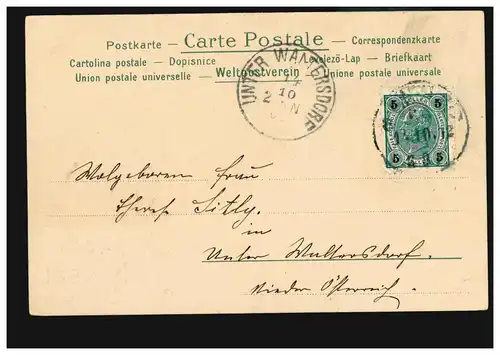 Postkarte — Carte Postale — Correspondenzkarte
Cartolina postale — Dopisnice Levelező-Lap — Briefkaart
Union postale universelle / Weltpostverein — Unione postale universale
UNTER WALTERSDORF
14
10
2 N
5 5
5 5
Wolgeboren Frau
Theres Sitly.
in
Unter Waltersdorf.
Nieder Österreich.